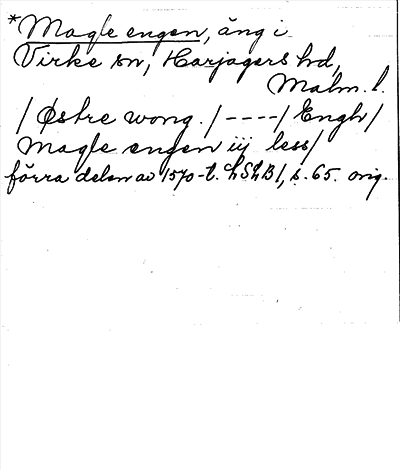 *Magle engen, äng i
Virke sn, Harjagers hd,
Malm. l.
/ Østre wong. / ---- / Engh /
Magle engen iij less /
förra delen av 1570-t. LSLB 1, s. 65. orig.